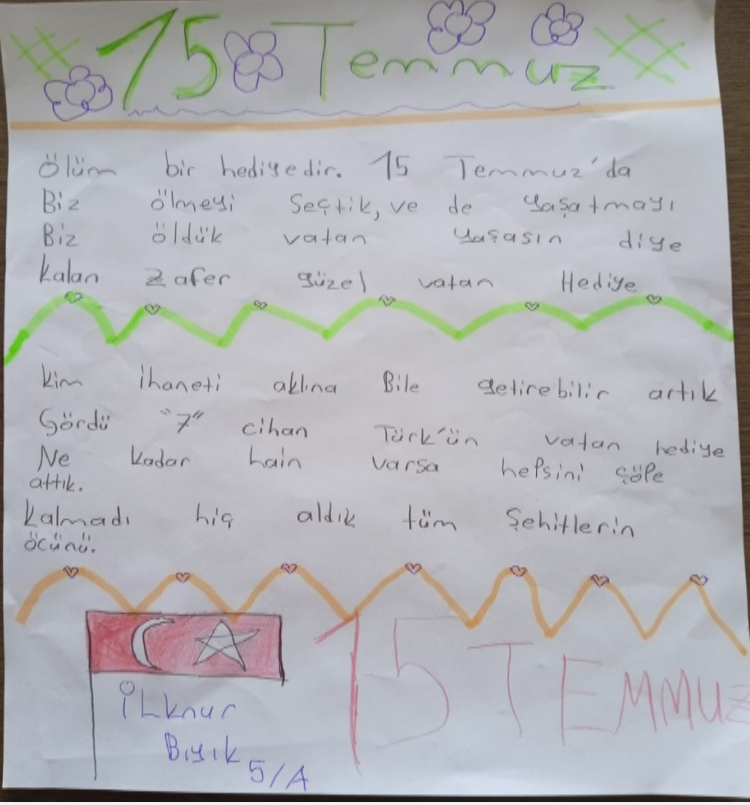 15 Temmuz
Ölüm bir hediyedir. 15 Temmuz'da
Biz ölmeyi Seçtik, ve de Yaşatmayı
Biz öldük vatan Yaşasın diye
kalan Zafer güzel vatan Hediye
kim ihaneti aklına Bile getirebilir artık
Gördü "7" cihan Türk'ün vatan hediye
Ne kadar hain varsa hefsini çöpe
attık.
kalmadı hiç aldık tüm Şehitlerin
öcünü.
15 TEMMUZ
İLknur
Bıyık 5/A